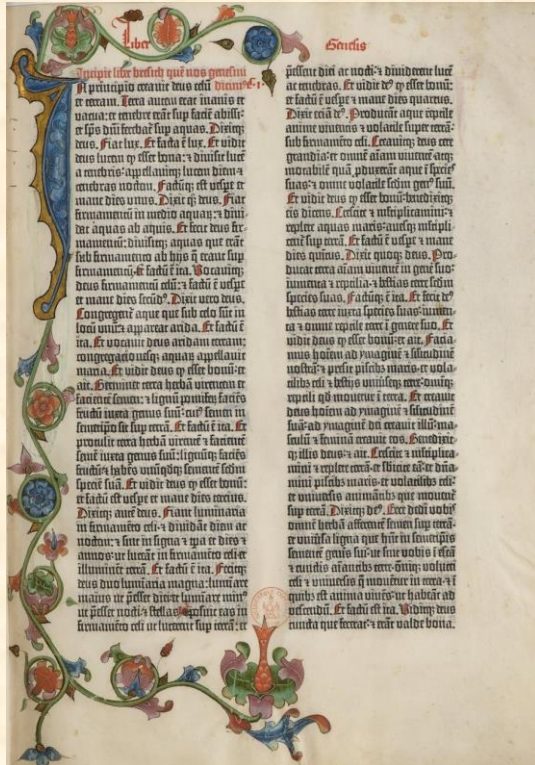 Liber
Genesis
Incipit liber bresith quē nos genesim
dicimꝰ
In principio creavit deus celū
et terram. Terra autem erat inanis et
vacua: et tenebre erāt sup faciē abissi:
et spūs dñi ferebat͛ sup aquas. Dixitqꝫ
deus. Fiat lux. Et facta ē lux. Et vidit
deus lucem ꝙ esset bona: et divisit lucē
a tenebris: appellavitqꝫ lucem diem et
tenebras noctem. Factūqꝫ est vespe et
mane dies unus. Dixit qꝫ deus. Fiat
firmamentū in medio aquaꝝ: et divi-
dat aquas ab aquis. Et fecit deus fir-
mamentū: divisitqꝫ aquas que erāt
sub firmamento ab hijs que erant sup
firmamentū: et factū ē ita. Vocavitqꝫ
deus firmamentū celū: et factū ē vespe
et mane dies secūdꝰ. Dixit vero deus.
Congregent͛ aque que sub celo sūt in
locū unū et appareat arida. Et factū ē
ita. Et vocavit deus aridam terram:
congregacionesqꝫ aquaꝝ appellavit
maria. Et vidit deus ꝙ esset bonū: et
ait. Germinet terra herbā virentem et
facientē semen: et lignū pomiferū faciēs
fructū iuxta genus suū: cuiꝰ semen in
semetipo sit sup terrā. Et factū ē ita. Et
protulit terra herbā virentē et facientē
semē iuxta genus suū: lignūqꝫ faciēs
fructū et habēs unūqdqꝫ sementē scdm
speciē suā. Et vidit deus ꝙ esset bonū:
et factū est vespe et mane dies tercius.
Dixitqꝫ autē deus. Fiant luminaria
in firmamēto celi: et dividāt diem ac
noctem: et sint in signa et tpa et dies et
annos: ut luceāt in firmamēto celi et
illuminēt terrā. Et factū ē ita. Fecitqꝫ
deus duo luminaria magna: lumiare
maius ut pesset diei et lumiare minꝰ
ut pesset nocti: et stellas: et posuit eas in
firmamēto celi ut lucerent sup terrā: et
pessent diei ac nocti: et dividerent lucē
ac tenebras. Et vidit deꝰ ꝙ esset bonū:
et factū ē vespe et mane dies quartus.
Dixit eciā deꝰ. Producāt aque reptile
anime viventis et volatile super terrā:
sub firmamēto celi. Creavitqꝫ deus cete
grandia: et omnē aīam viventē atqꝫ
motabilē quā pduxerāt aque ī species
suas: et omne volatile scdm genꝰ suū.
Et vidit deus ꝙ esset bonū: benedixitqꝫ
eis dicens. Crescite et mltiplicamini: et
replete aquas maris: avesqꝫ mltipli-
cent͛ sup terrā. Et factū ē vespe et mane
dies quitus. Dixit quoqꝫ deus. Pro-
ducat terra aīam viventē in gene suo:
iumenta et reptilia: et bestias terre scdm
species suas. Factūqꝫ ē ita. Et fecit deꝰ
bestias terre iuxta species suas: iumen-
ta et omne reptile terre ī genere suo. Et
vidit deus ꝙ esset bonū: et ait. Facia-
mus hoīem ad ymaginē et silitudinē
nostrā: et presit piscibꝫ maris: et vola-
tilibꝫ celi et bestijs universeqꝫ terre: omniqꝫ
reptili qd movetur ī terra. Et creavit
deus hoīem ad ymaginē et silitudinē
suā: ad ymaginē dei creavit illū: ma-
sculū et feminā creavit eos. Benedixit-
qꝫ illis deus: et ait. Crescite et mltiplica-
mini et replete terrā: et sbicite eā: et dña-
mini piscibꝫ maris: et volatilibꝫ celi:
et universis animātibꝫ que moventur
sup terrā. Dixitqꝫ deꝰ. Ecce dedi vobis
omnē herbā afferentē semen sup terrā:
et universa ligna que hñt in semetipis
sementē genīs sui: ut sint vobis ī escā
et cunctis aīantibꝫ terre: omniqꝫ volucri
celi et universis q moventur in terra: et ī
quibꝫ est anima vivēs: ut habeāt ad
vescendū. Et factū est ita. Viditqꝫ deus
cuncta que fecerat: et erāt valde bona.